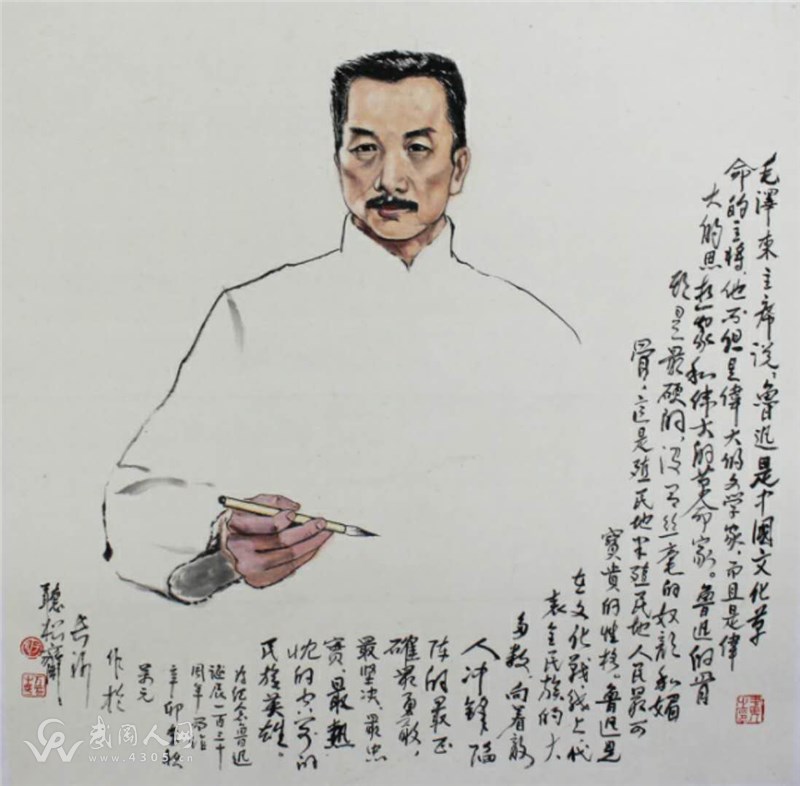 毛澤東主席说，魯迅是中國文化革
命的主将，他不但是偉大的文学家，而且是偉
大的思想家和伟大的革命家。魯迅的骨
头是最硬的，没有丝毫的奴颜和媚
骨，这是殖民地半殖民地人民最可
寳貴的性格。魯迅是
在文化戰线上代
表全民族的大
多数，向着敵
人冲鋒陷
阵的最正
確最勇敢，
最坚决、最忠
實、最熱
忱的空前的
民族英雄。
为纪念魯迅
诞辰一百三十
周年而作
辛卯秋
作於
長沙
聽松齋
武冈人网
www.4305.cn